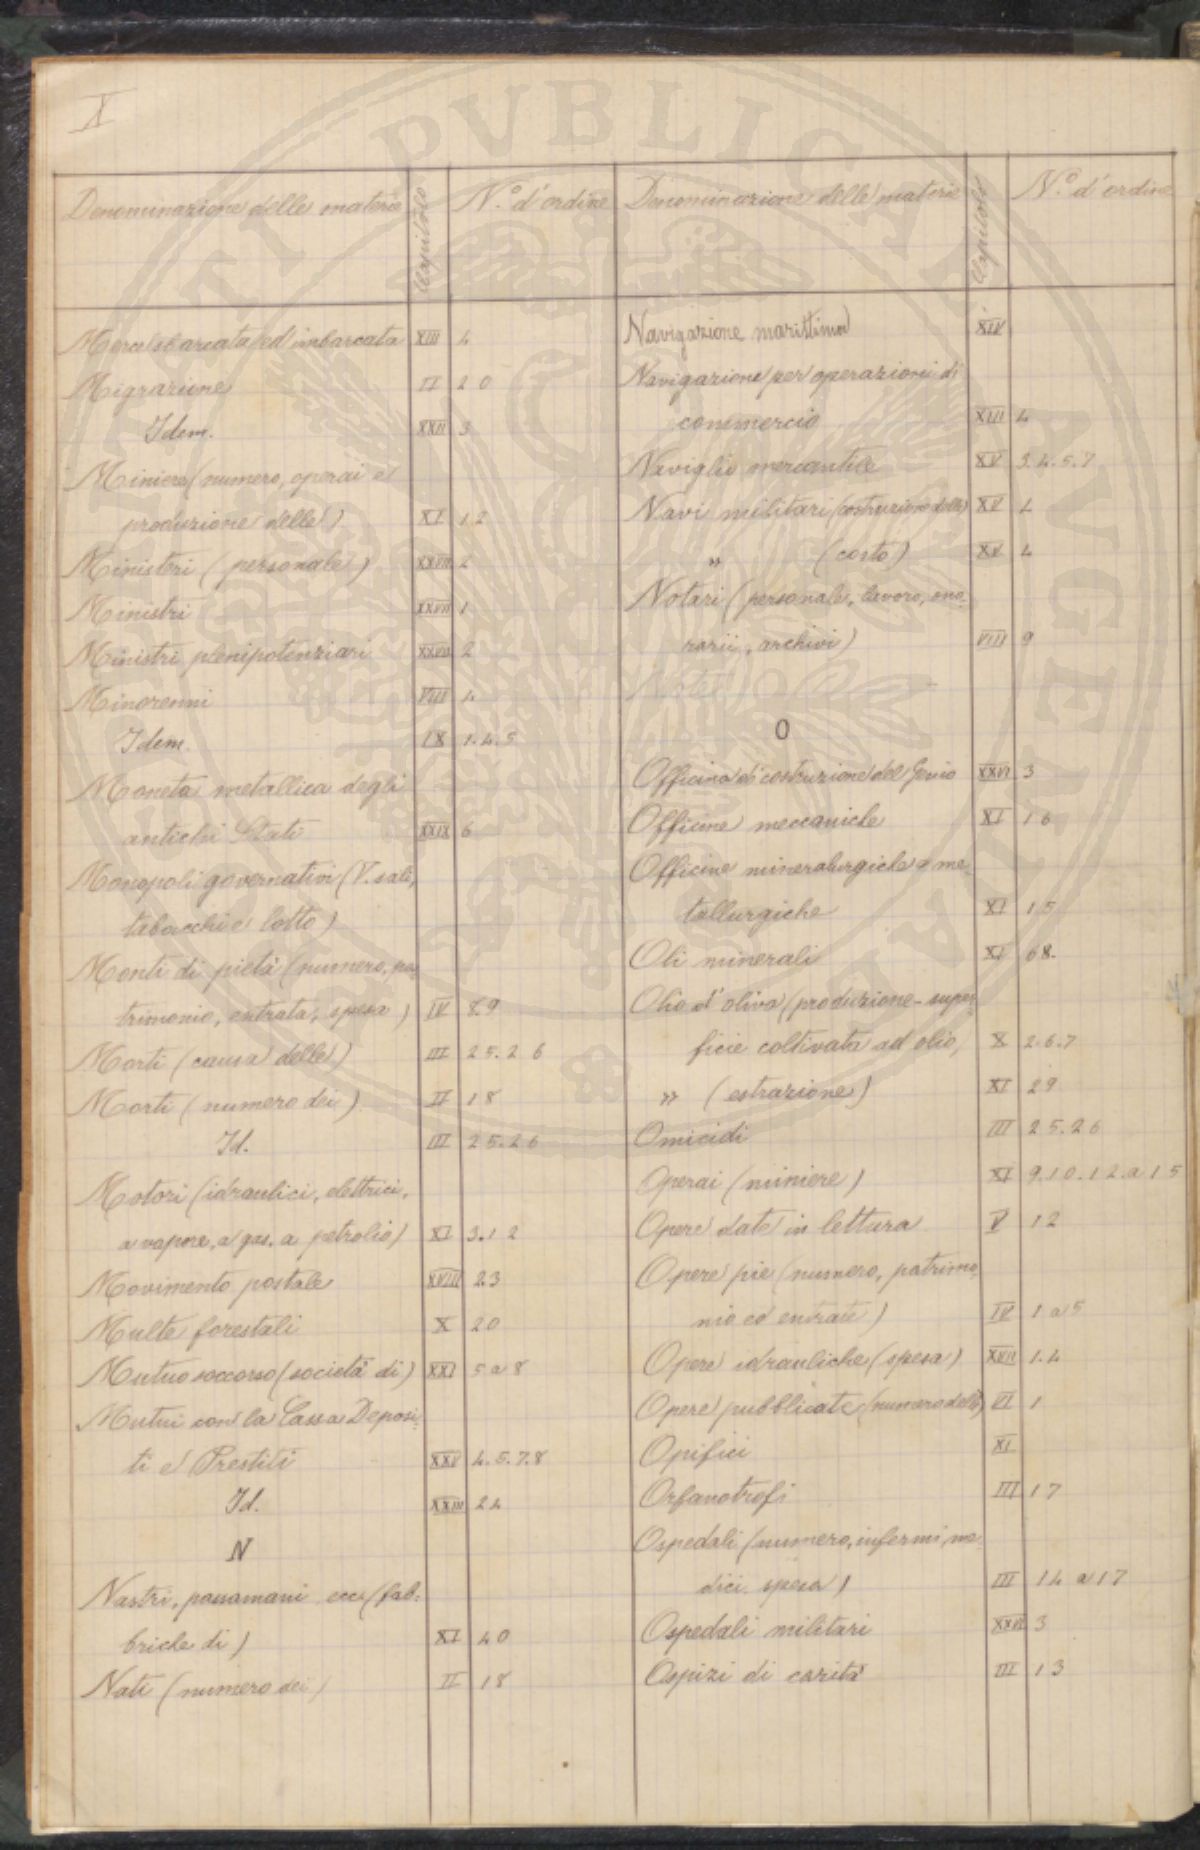 X
Denominazione delle materie Capitolo N.o d'ordine
Merce sbarcata ed imbarcata XIII 4
Migrazione II 20
Idem. XXII 3
Miniere (numero, operai e
produzione delle) XI 12
Ministeri (personale) XXVII 2
Ministri XXVII 1
Ministri plenipotenziari XXVII 2
Minorenni VIII 4
Idem. IX 1.4.5
Moneta metallica degli
antichi Stati XXIX 6
Monopoli governativi (V. sali,
tabacchi e lotto)
Monti di pietà (numero, pa
trimonio, entrata, spesa) IV 8.9
Morti (causa delle) III 25.26
Morti (numero dei) II 18
Id. III 25.26
Motori (idraulici, elettrici,
a vapore, a gas, a petrolio) XI 3.12
Movimento postale XVIII 23
Multe forestali X 20
Mutuo soccorso (società di) XXI 5 a 8
Mutui con la Cassa Deposi
ti e Prestiti XXV 4.5.7.8
Id. XXIII 24
N
Nastri, passamani ecc. (fab:
briche di) XI 40
Nati (numero dei) II 18
Denominazione delle materie Capitolo N.o d'ordine
Navigazione marittima XIV
Navigazione per operazioni di
commercio XIII 4
Naviglio mercantile XV 3.4.5.7
Navi militari (costruzione delle) XV 4
" (costo) XV 4
Notari (personale, lavoro, ono
rarii, archivi) VIII 9
O
Officina di costruzione del Genio XXVI 3
Officine meccaniche XI 16
Officine mineralurgiche e me
tallurgiche XI 15
Oli minerali XI 68.
Olio d'oliva (produzione - super
ficie coltivata ad olio, X 2.6.7
" (estrazione) XI 29
Omicidi III 25.26
Operai (miniere) XI 9.10.12.a 15
Opere date in lettura V 12
Opere pie (numero, patrimo
nio ed entrate) IV 1 a 5
Opere idrauliche (spesa) XVII 1.4
Opere pubblicate (numero delle) VI 1
Opifici XI
Orfanotrofi III 17
Ospedali (numero, infermi, me
dici spesa) III 14 a 17
Ospedali militari XXVI 3
Ospizi di carità III 13